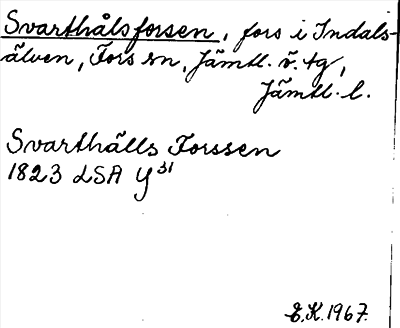 Svarthålsforsen, fors i Indals-
älven, Fors sn, Jämtl. ö. tg,
Jämtl. l.
Svarthälls Forssen
1823 LSA Y 31
E.K. 1967.